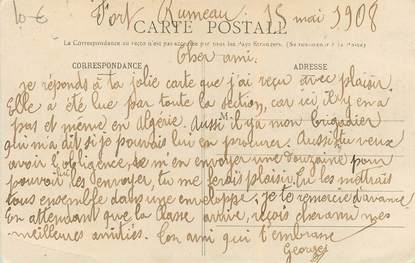 10 €
Fort Rumeau 15 mai 1908
CARTE POSTALE
La Correspondance au recto n'est pas acceptée par tous les Pays Étrangers. (Se renseigner à la Poste)
Cher ami.
CORRESPONDANCE ADRESSE
je réponds à ta jolie carte que j'ai reçu avec plaisir.
Elle a été lue par toute la section, car ici il y en a
pas et même en Algérie. Aussi il y a mon brigadier
qui m'a dit si je pouvais lui en procurer. Aussi tu veux
avoir l'obligence de m'en envoyer une douzaine pour
pouvoir lui les envoyer, tu me ferais plaisir. Tu les mettrais
tous ensemble dans une enveloppe. je te remercie d'avance
En attendant que la classe arrive, reçois cher ami mes
meilleures amitiés. Ton ami qui t'embrasse
Georges